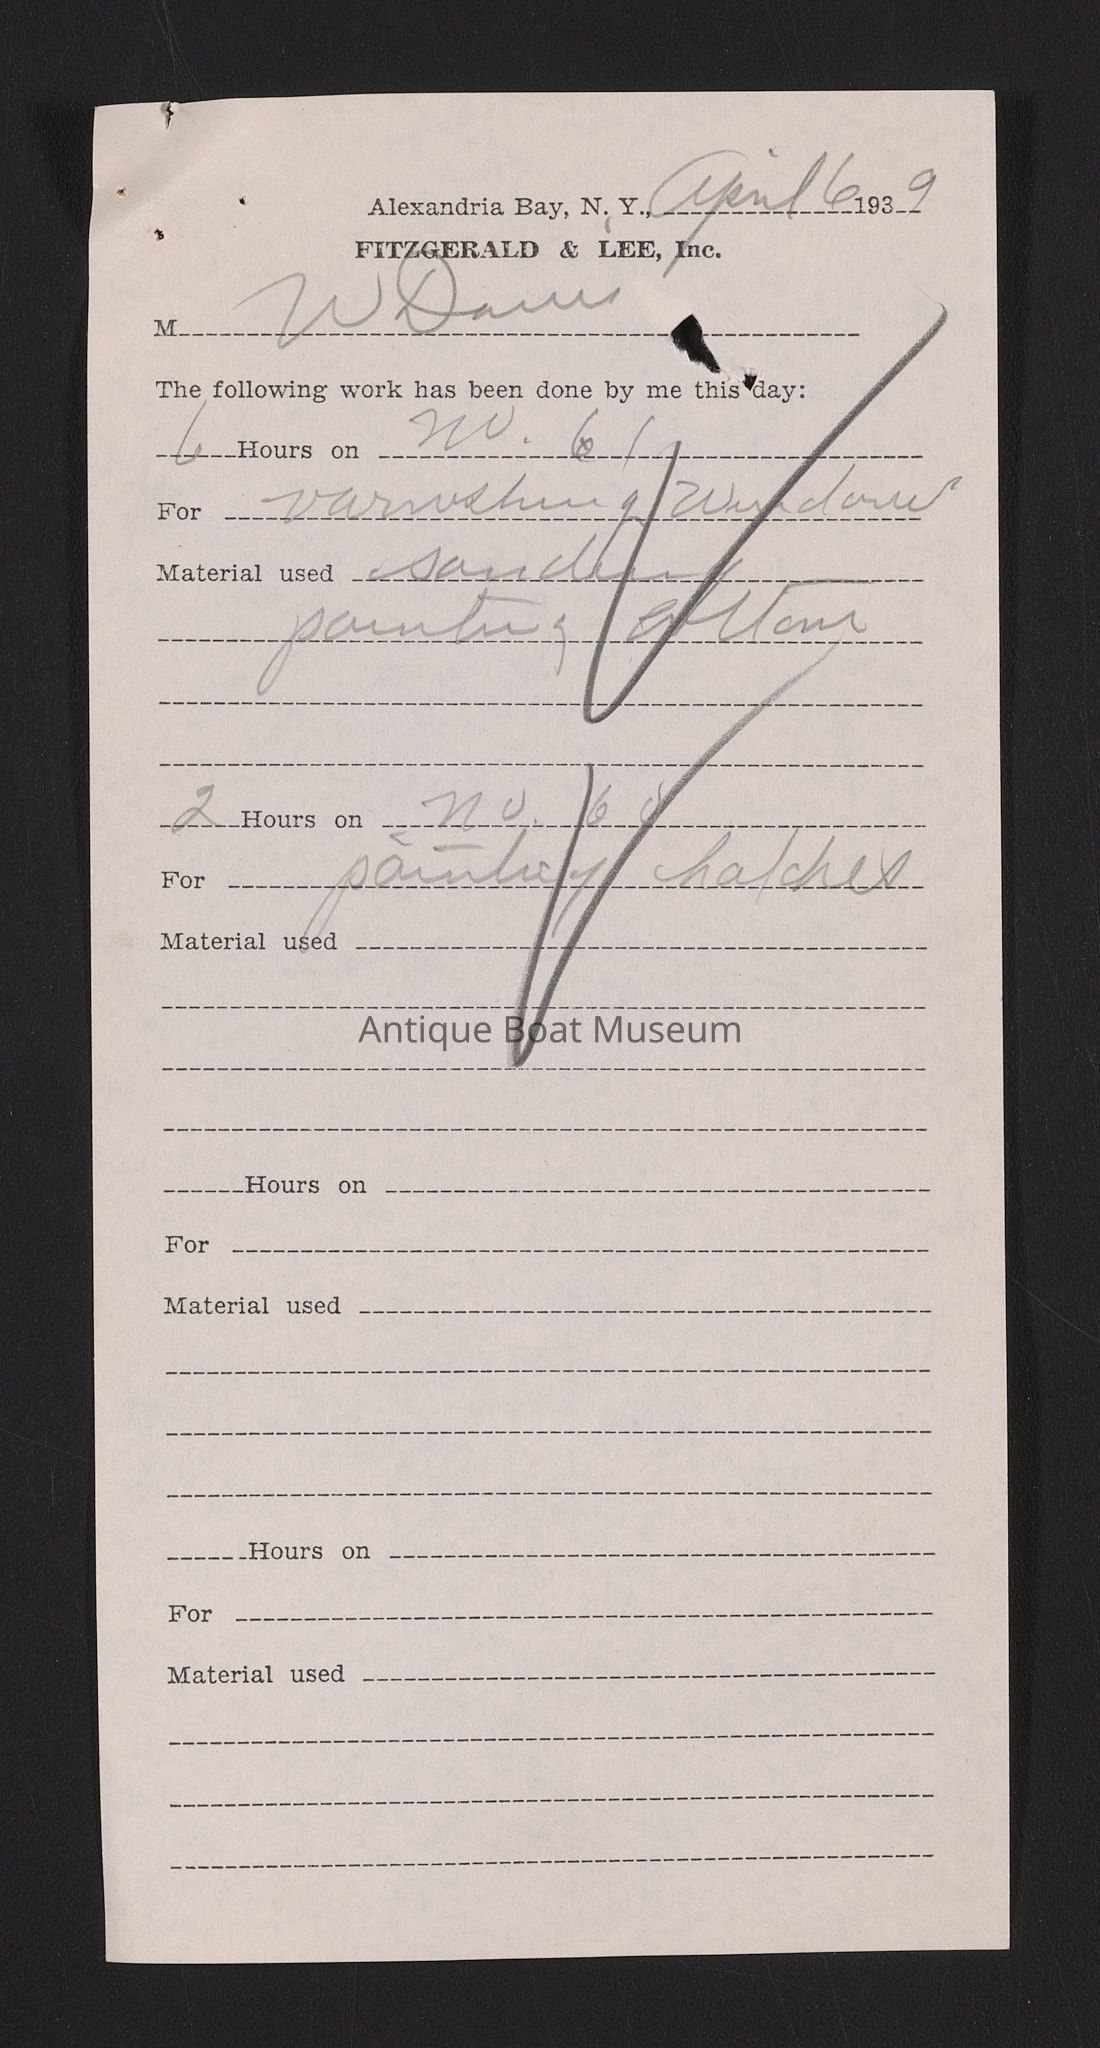 Alexandria Bay, N. Y., April 6 1939
FITZGERALD & LEE, Inc.
M W Davis
The following work has been done by me this day:
6 Hours on No. 61
For varnishing windows
Material used sanding
painting bottom
2 Hours on No. 60
For painting hatches
Material used
Antique Boat Museum
Hours on
For
Material used
Hours on
For
Material used